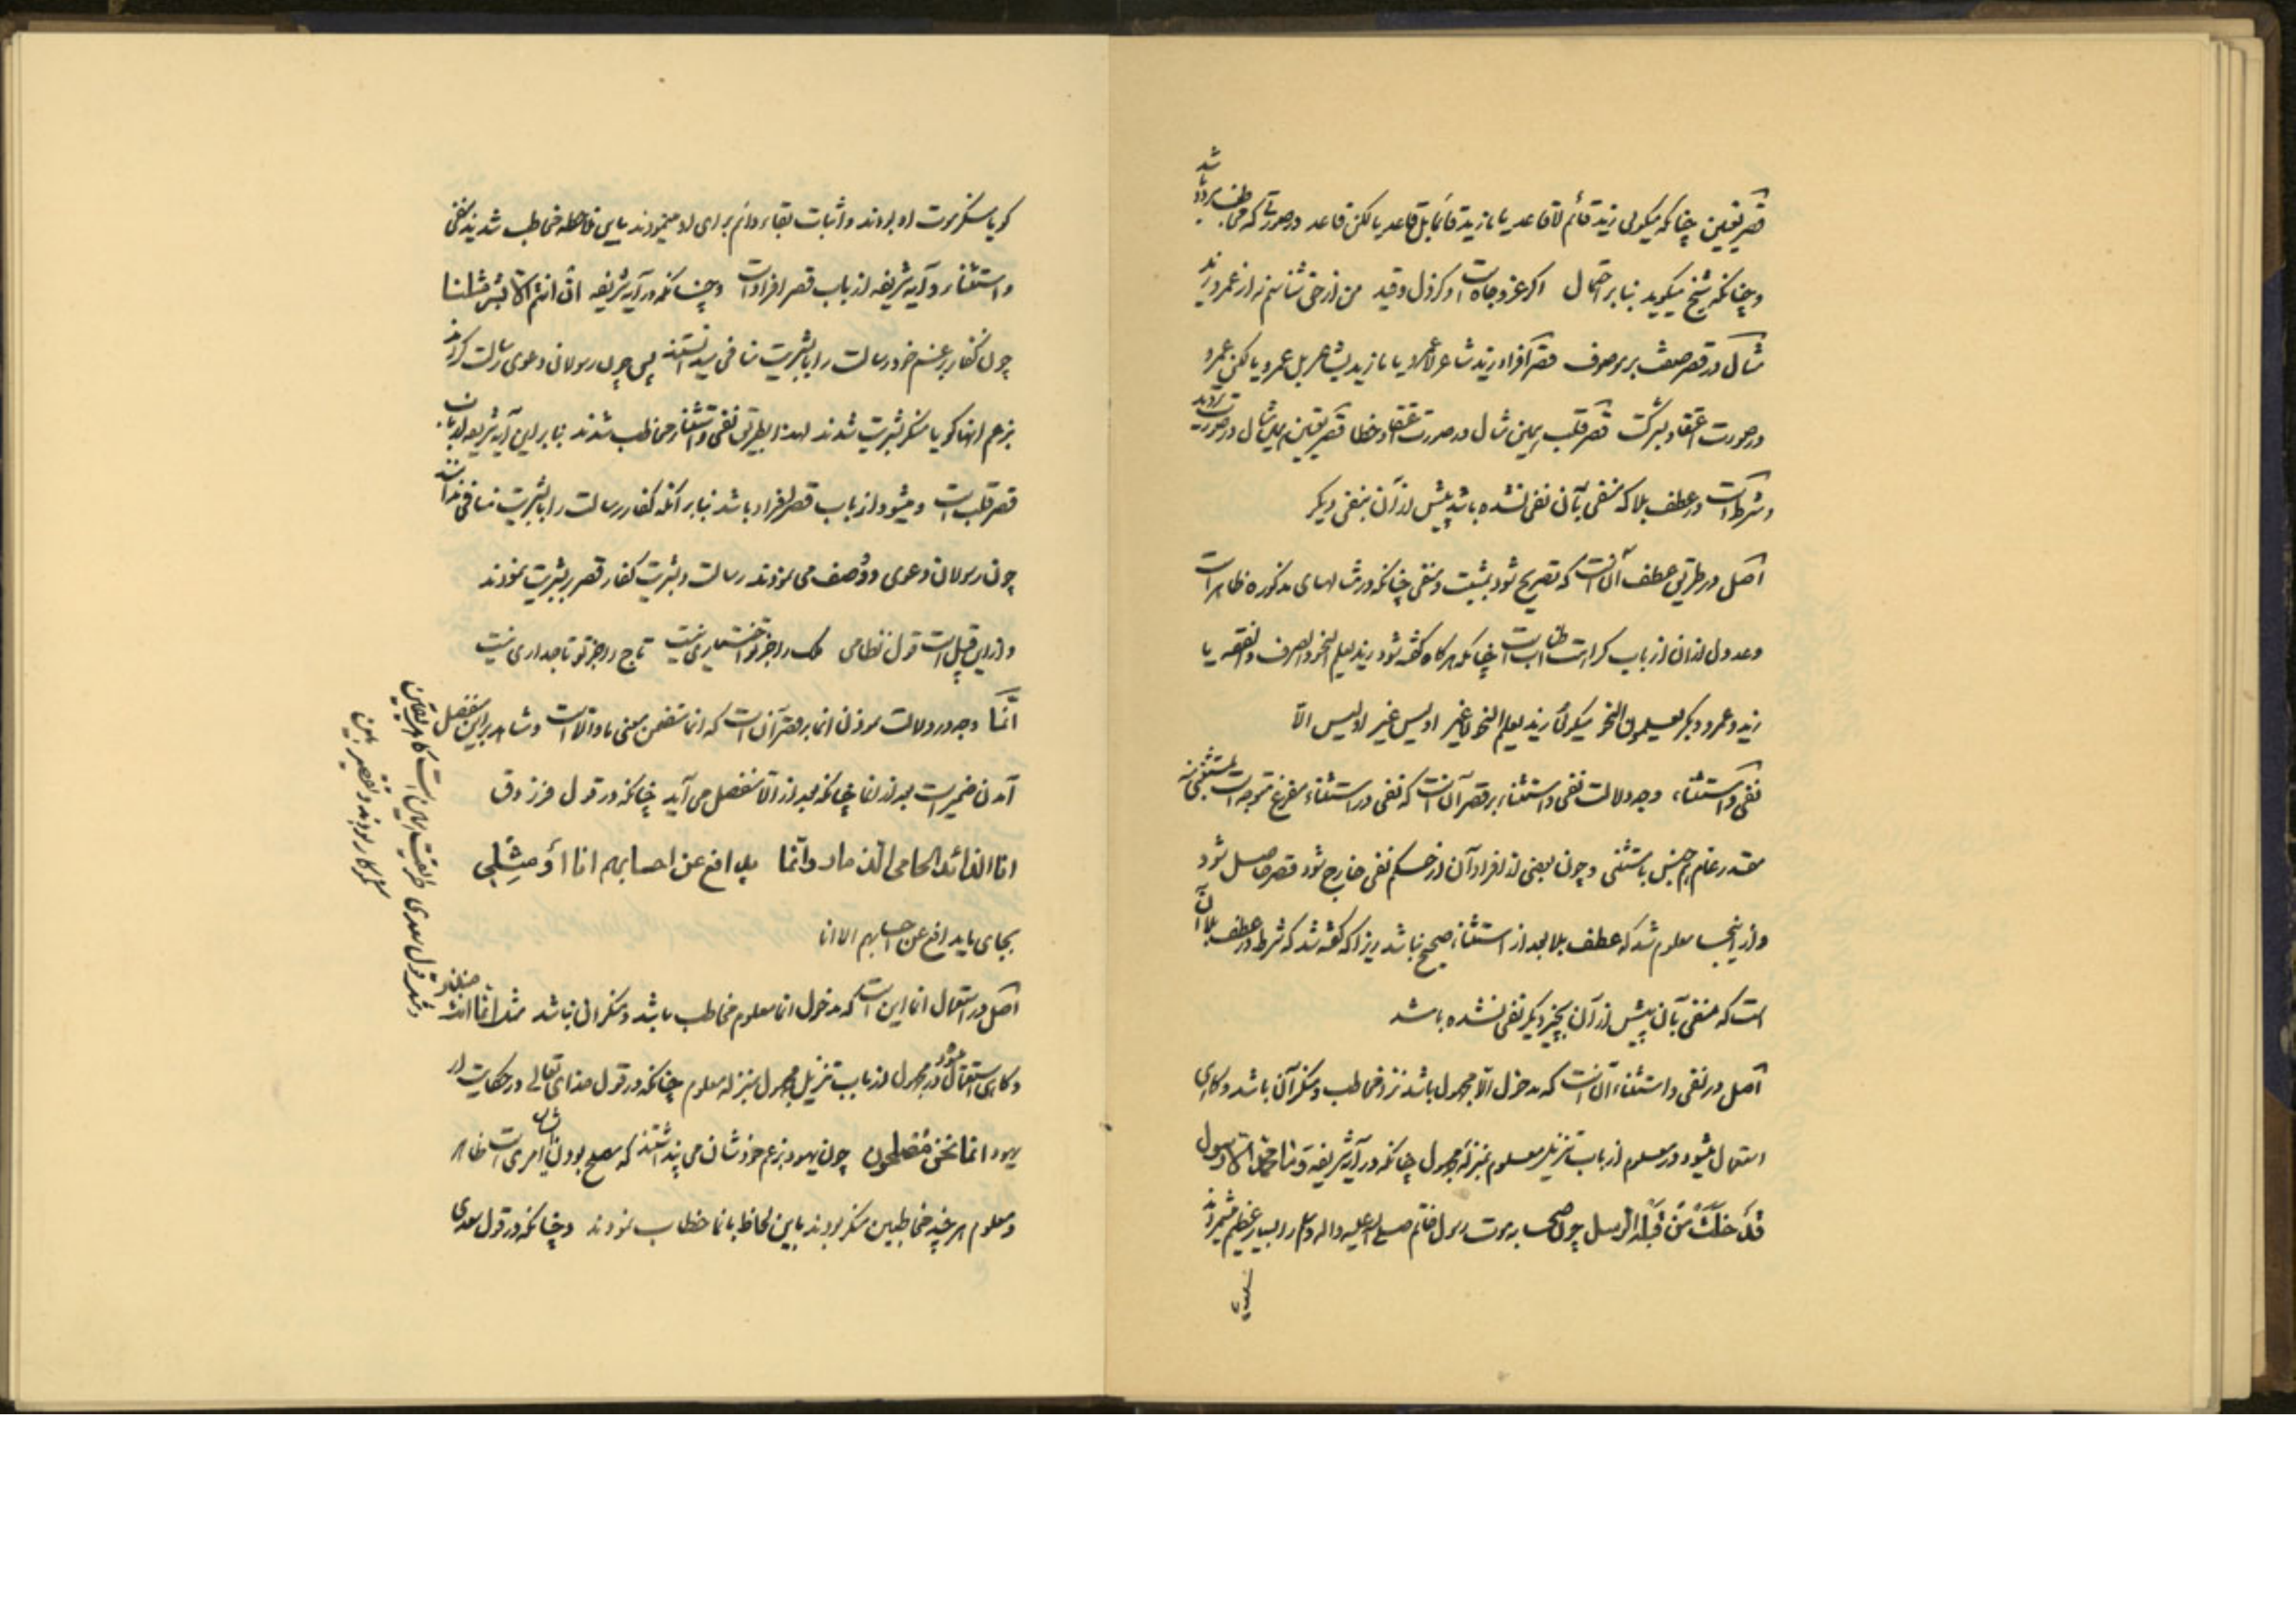 قصر تعیین چنانکه میگوئی زید قائم لا قاعد یا ما زید قائما بل قاعد یا لکن قاعد در صورتی که مخاطب مردد باشد
و چنانکه شیخ میگوید بنا بر احتمال اگر عز و جاه است و گر ذل و قید من از حق شناسم نه از عمرو و زید
مثال در قصر صفت بر موصوف قصر افراد زید شاعر لا عمرو یا ما زید بشاعر بل عمرو یا لکن عمرو
در صورت اعتقاد بشرکت قصر قلب همین مثال در صورت اعتقاد خطا قصر تعیین همین مثال در صورت تردید
و شرط است در عطف بلا که منفی بآن نفی نشده باشد پیش از آن بنفی دیگر
اصل در طریق عطف آنست که تصریح شود بمثبت و منفی چنانکه در مثالهای مذکوره ظاهر است
و عدول از آن از باب کراهت اطناب است چنانکه هرگاه گفته شود زید یعلم النحو و الصرف و الفقه یا
زید و عمرو و بکر یعلمون النحو میگوئی زید یعلم النحو لا غیر او لیس غیر او لیس الا
نفی و استثناء وجه دلالت نفی و استثناء بر قصر آنست که نفی در استثناء مفرغ متوجه است بمستثنی منه
مقدر عام هم جنس با مستثنی و چون بعضی از افراد آن از حکم نفی خارج شود قصر حاصل شود
و از اینجا معلوم شد که عطف بلا بعد از استثناء صحیح نباشد زیرا که گفته شد که شرط در عطف بلا آن
است که منفی بآن پیش از آن بچیز دیگر نفی نشده باشد
اصل در نفی و استثناء آنست که مدخول الا مجهول باشد نزد مخاطب و منکر آن باشد و گاهی
استعمال میشود در معلوم از باب تنزیل معلوم بمنزله مجهول چنانکه در آیه شریفه و ما محمد الا رسول
قد خلت من قبله الرسل چون صحابه موت رسول خاتم صلی الله علیه و اله و سلم را بسیار عظیم میشمردند
گویا منکر موت او بودند و اثبات بقاء دائم برای او مینمودند باین ملاحظه مخاطب شدند بنفی
و استثناء و آیه شریفه از باب قصر افراد است و چنانکه در آیه شریفه ان انتم الا بشر مثلنا
چون کفار بزعم خود رسالت را با بشریت منافی میدانستند پس چون رسولان دعوی رسالت کردند
بزعم آنها گویا منکر بشریت شدند لهذا بطریق نفی و استثناء مخاطب شدند بنا بر این آیه شریفه از باب
قصر قلب است و میشود از باب قصر افراد باشد بنا بر آنکه کفار رسالت را با بشریت منافی ندانند
چون رسولان دعوی دو وصف می نمودند رسالت و بشریت کفار قصر بر بشریت نمودند
و از این قبیل است قول نظامی ملک را جز تو اختیاری نیست تاج را جز تو تاجداری نیست
انّما وجه در دلالت نمودن انما بر قصر آن است که انما متضمن معنی ما و الا است و شاهد بر این منفصل
آمدن ضمیر است بعد از انما چنانکه بعد از الا منفصل می آید چنانکه در قول فرزدق
انا الذائد الحامی الذمار و انّما یدافع عن احسابهم انا او مثلی
بجای یدافع عن احسابهم الا انا
اصل در استعمال انما این است که مدخول انما معلوم مخاطب باشد و منکر آن نباشد مثل
و گاهی استعمال میشود در مجهول از باب تنزیل مجهول بمنزله معلوم چنانکه در قول خدای تعالی در حکایت از
یهود انما نحن مصلحون چون یهود بزعم خودشان می پنداشتند که مصلح بودن ایشان امری است ظاهر
و معلوم هر چند مخاطبین منکر بودند باین لحاظ بانما خطاب نمودند و چنانکه در قول سعدی